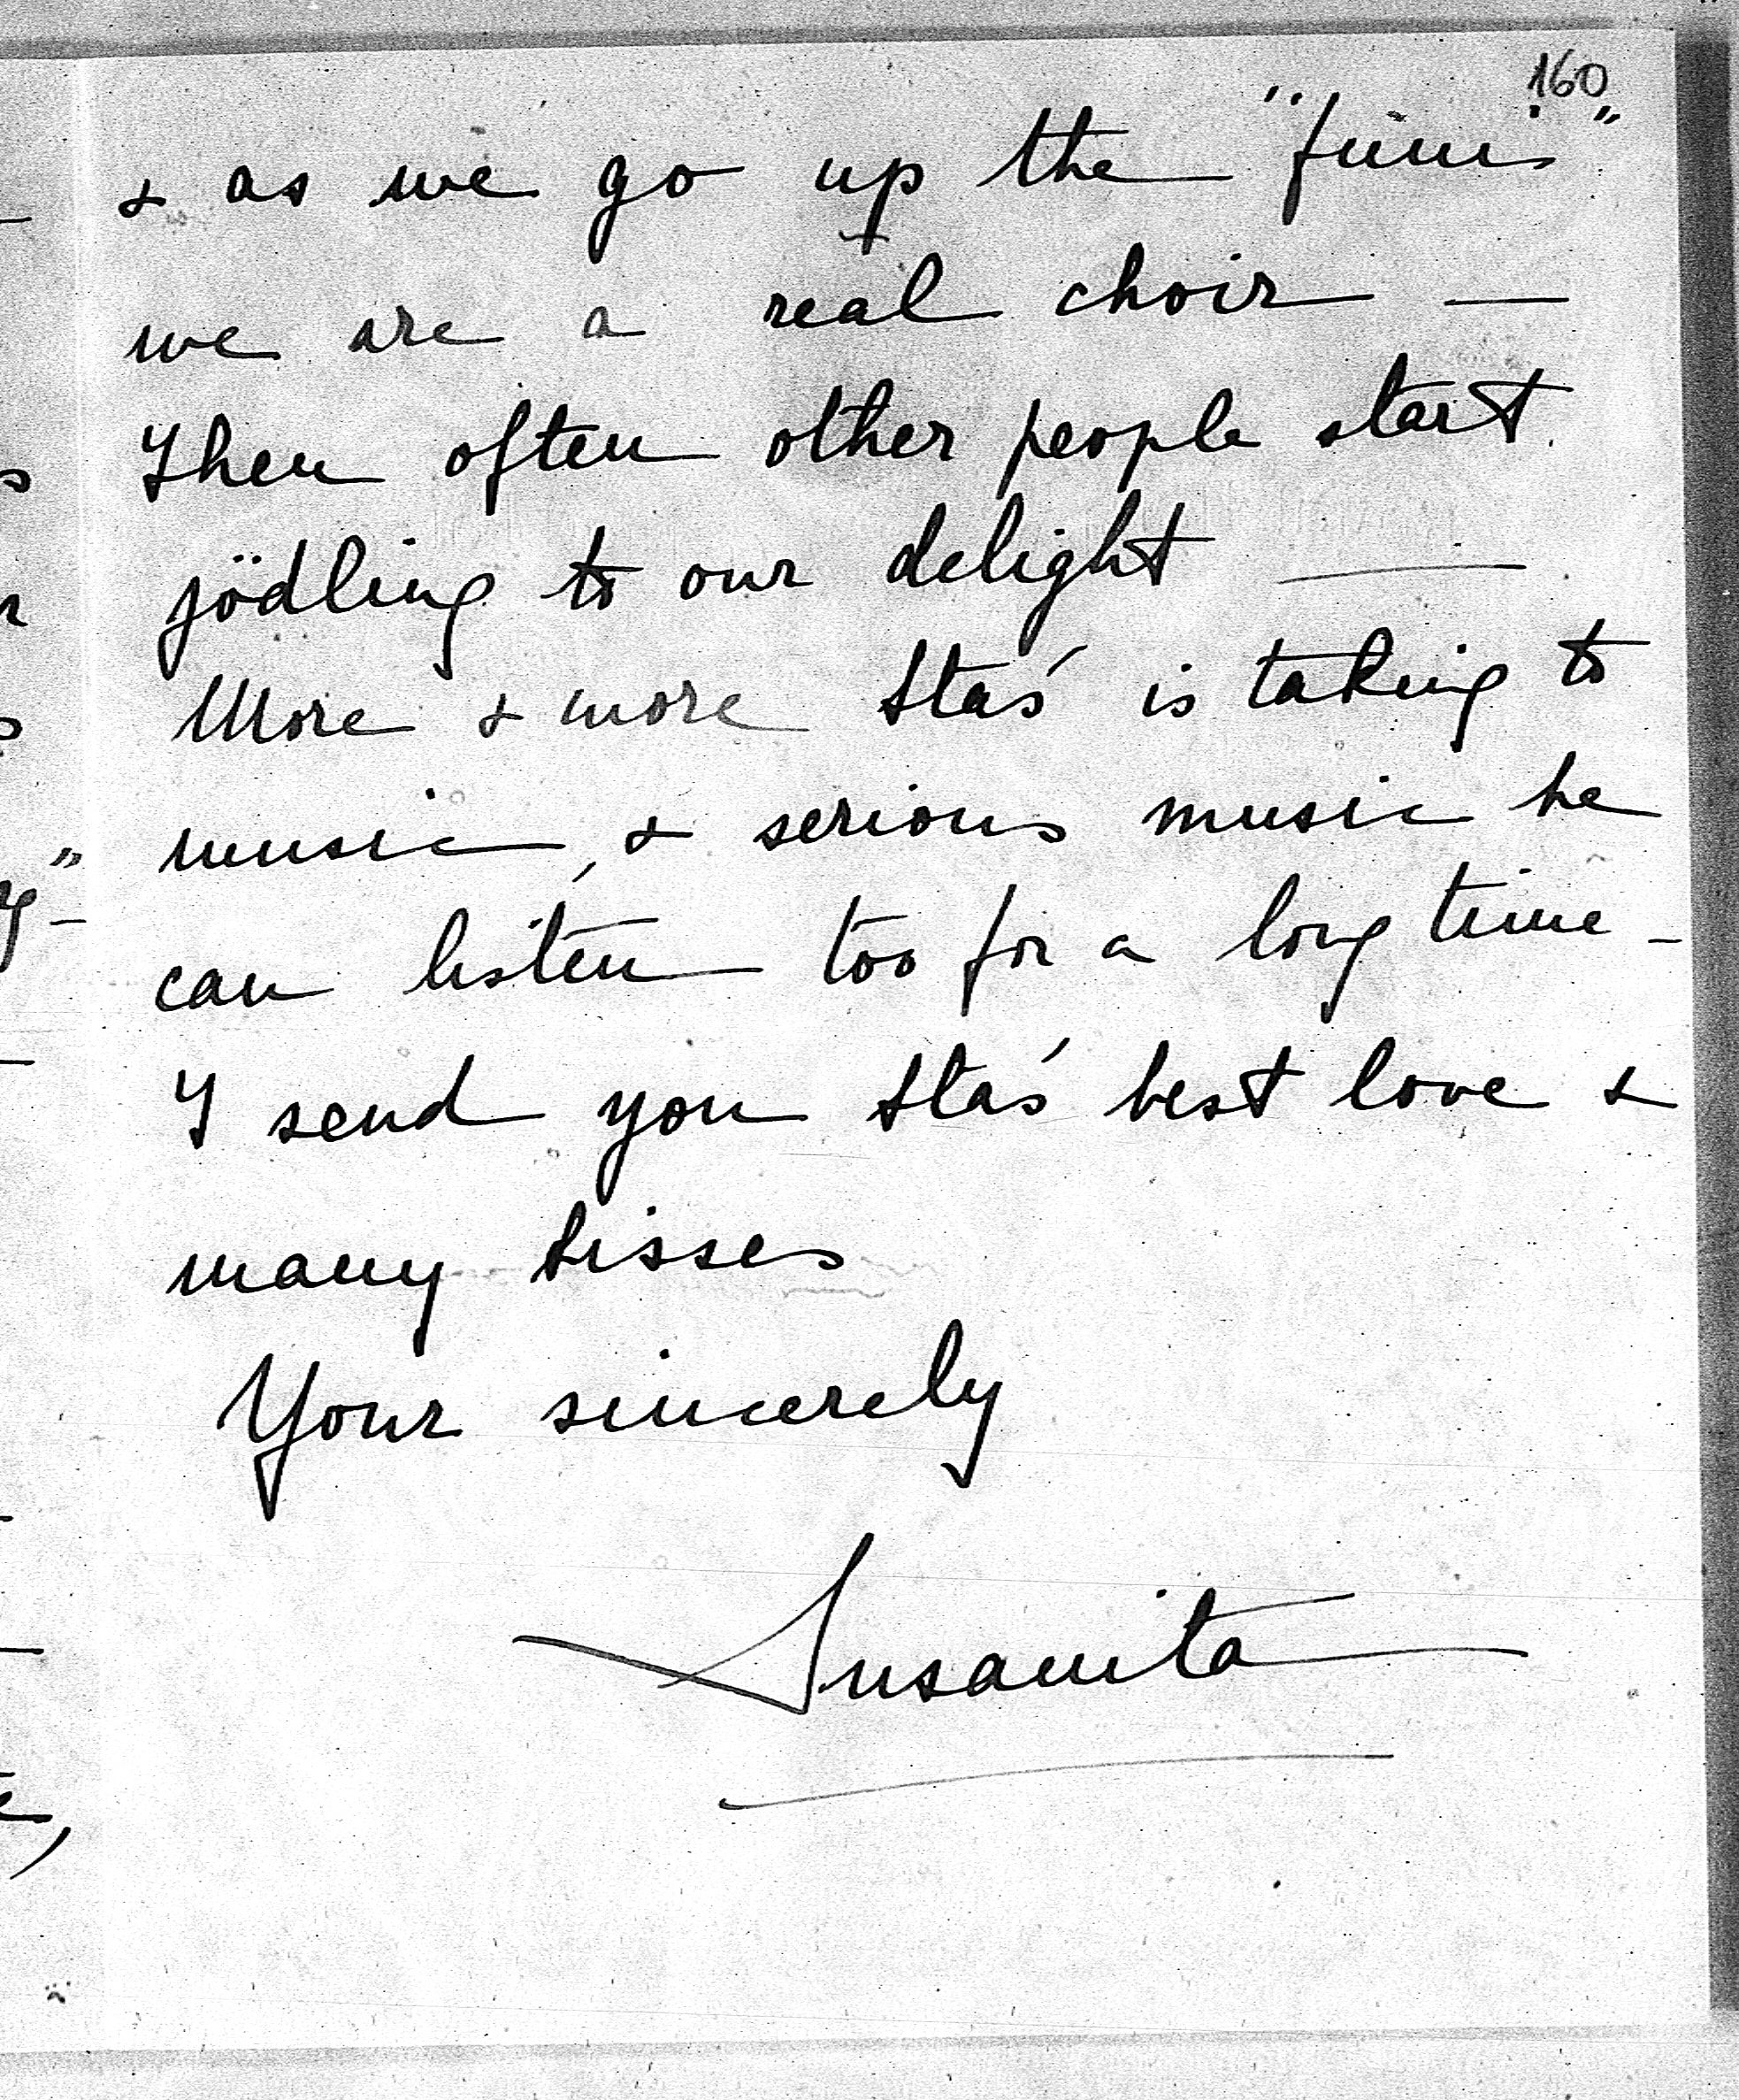 160
& as we go up the "funi"
we are a real choir —
Then often other people start
jödling to our delight —
More & more Staś is taking to
music, & serious music he
can listen too for a long time –
I send you Staś best love &
many kisses
Your sincerely
Susanita